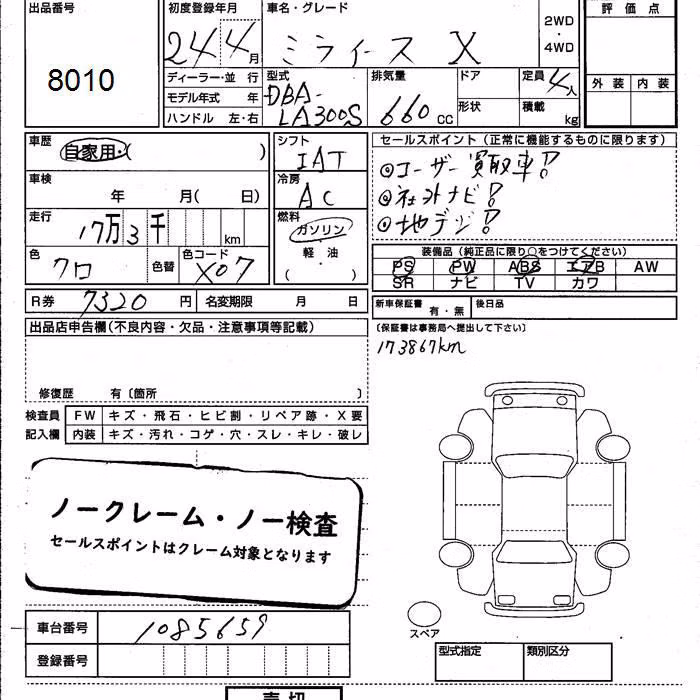 出品番号
8010
初度登録年月
24 4月
車名・グレード
ミライース X
2WD
・
4WD
評価点
外装 内装
ディーラー・並 行
モデル年式 年
ハンドル 左・右
型式
DBA-
LA300S
排気量
660 CC
ドア
形状
定員 4人
積載 kg
車歴
自家用・( )
車検
年 月( 日)
走行
17万3千 km
色
クロ
色替
色コード
X07
シフト
IAT
冷房
AC
燃料
ガソリン
・
軽・油
( )
セールスポイント(正常に機能するものに限ります)
◎ユーザー買取車!
◎社外ナビ!
◎地デジ!
装備品(純正品に限り○をつけてください)
PS PW ABS エアB AW
SR ナビ TV カワ
R券 7320 円 名変期限 月 日
新車保証書 有・無 後日品
(保証書は事務局へ提出して下さい)
173867km
出品店申告欄(不良内容・欠品・注意事項等記載)
修復歴 有〔箇所 〕
検査員 FW キズ・飛石・ヒビ割・リペア跡・X要
記入欄 内装 キズ・汚れ・コゲ・穴・スレ・キレ・破レ
ノークレーム・ノー検査
セールスポイントはクレーム対象となります
車台番号 1085659
登録番号
スペア
型式指定 類別区分
売切